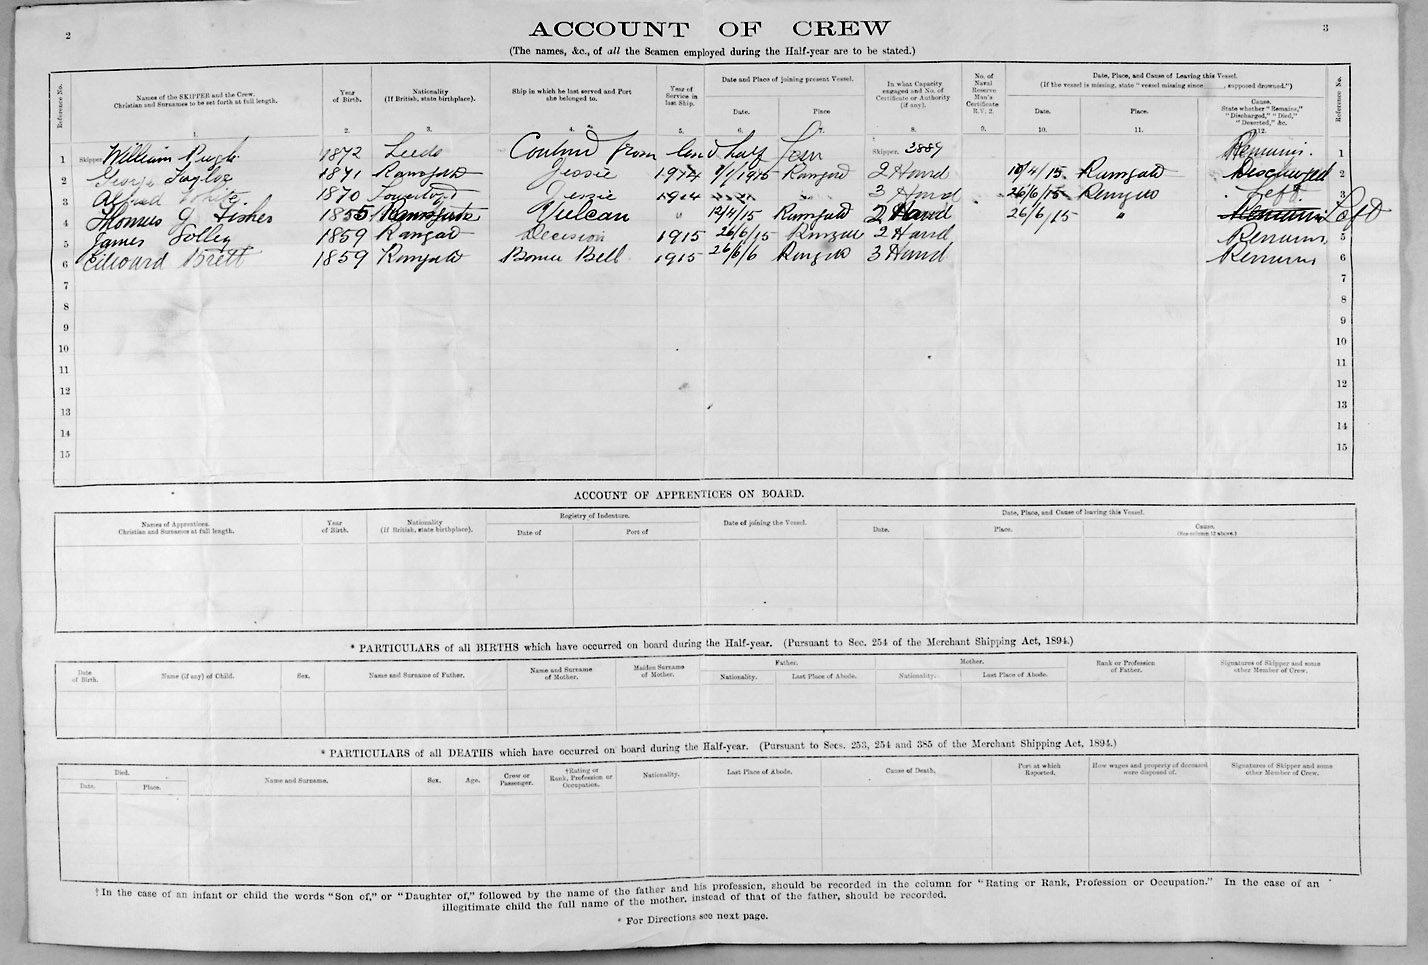 2
ACCOUNT OF CREW
3
(The names, &c., of all the Seamen employed during the Half-year are to be stated.)
Reference No.
Names of the SKIPPER and the Crew.
Christian and Surnames to be set forth at full length.
1.
Year
of Birth.
2.
Nationality
(If British, state birthplace).
3.
Ship in which he last served and Port
she belonged to.
4.
Year of
Service in
last Ship.
5.
Date and Place of joining present Vessel.
Date.
6.
Place
7.
In what Capacity
engaged and No. of
Certificate or Authority
(if any).
8.
No. of
Naval
Reserve
Man's
Certificate
R.V. 2.
9.
Date, Place, and Cause of Leaving this Vessel.
(If the vessel is missing, state "vessel missing since , supposed drowned.")
Date.
10.
Place.
11.
Cause.
State whether "Remains,"
"Discharged," "Died,"
"Deserted," &c.
12.
Reference No.
1 Skipper William Pugh 1872 Leeds from half Skipper. 2889 Remains. 1
2 George Taylor 1871 Ramsgate Jessie 1914 1/1/1915 Ramsgate 2 Hand 10/4/15 Ramsgate Discharged 2
3 Alfred White 1870 Jessie 1914 3 Hand 26/6/15 Ramsgate Left 3
4 Thomas G Fisher 1855 Ramsgate Vulcan " 12/4/15 Ramsgate 2 Hand 26/6/15 " Remains Left
5 James Solley 1859 Ramsgate Decision 1915 26/6/15 Ramsgate 2 Hand Remains 5
6 Edward Brett 1859 Ramsgate Bonnie Bell 1915 26/6/6 Ramsgate 3 Hand Remains 6
7 7
8 8
9 9
10 10
11 11
12 12
13 13
14 14
15 15
ACCOUNT OF APPRENTICES ON BOARD.
Names of Apprentices.
Christian and Surnames at full length.
Year
of Birth.
Nationality
(If British, state birthplace).
Registry of Indenture.
Date of
Port of
Date of joining the Vessel.
Date, Place, and Cause of leaving this Vessel.
Date.
Place.
Cause.
(See column 12 above.)
* PARTICULARS of all BIRTHS which have occurred on board during the Half-year. (Pursuant to Sec. 254 of the Merchant Shipping Act, 1894.)
Date
of Birth.
Name (if any) of Child.
Sex.
Name and Surname of Father.
Name and Surname
of Mother.
Maiden Surname
of Mother.
Father.
Nationality.
Last Place of Abode.
Mother.
Nationality.
Last Place of Abode.
Rank or Profession
of Father.
Signatures of Skipper and some
other Member of Crew.
* PARTICULARS of all DEATHS which have occurred on board during the Half-year. (Pursuant to Secs. 253, 254 and 385 of the Merchant Shipping Act, 1894.)
Died.
Date.
Place.
Name and Surname.
Sex.
Age.
Crew or
Passenger.
†Rating or
Rank, Profession or
Occupation.
Nationality.
Last Place of Abode.
Cause of Death.
Port at which
Reported.
How wages and property of deceased
were disposed of.
Signatures of Skipper and some
other Member of Crew.
† In the case of an infant or child the words "Son of," or "Daughter of," followed by the name of the father and his profession, should be recorded in the column for "Rating or Rank, Profession or Occupation." In the case of an
illegitimate child the full name of the mother, instead of that of the father, should be recorded.
* For Directions see next page.